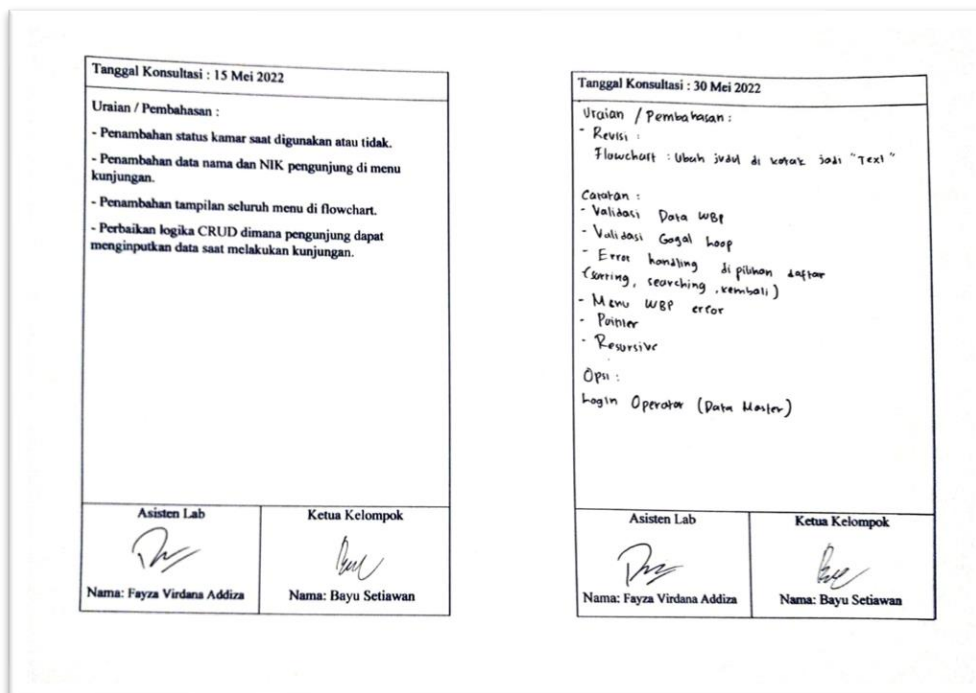 Tanggal Konsultasi : 15 Mei 2022
Uraian / Pembahasan :
- Penambahan status kamar saat digunakan atau tidak.
- Penambahan data nama dan NIK pengunjung di menu
kunjungan.
- Penambahan tampilan seluruh menu di flowchart.
- Perbaikan logika CRUD dimana pengunjung dapat
menginputkan data saat melakukan kunjungan.
Asisten Lab
Ketua Kelompok
Nama: Fayza Virdana Addiza
Nama: Bayu Setiawan
Tanggal Konsultasi : 30 Mei 2022
Uraian / Pembahasan :
- Revisi :
Flowchart : Ubah judul di kotak jadi "Text"
Catatan :
- Validasi Data WBP
- Validasi Gagal Loop
- Error handling di pilihan daftar
(sorting, searching, kembali)
- Menu WBP error
- Pointer
- Resursive
Opsi :
Login Operator (Data Master)
Asisten Lab
Ketua Kelompok
Nama: Fayza Virdana Addiza
Nama: Bayu Setiawan